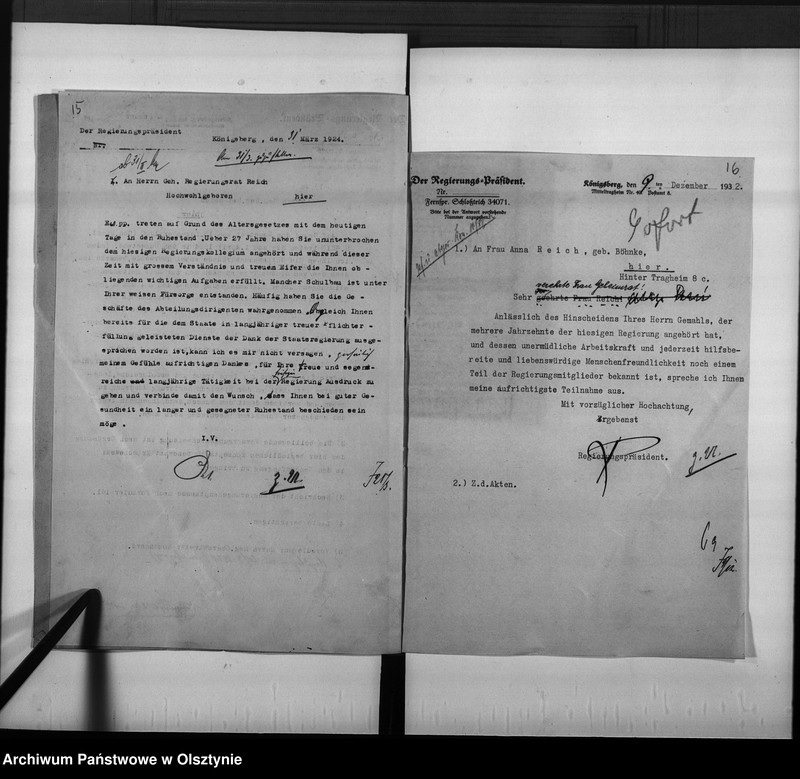 15
Der Regierungspräsident
Königsberg, den 31 März 1924.
Pr.
An Herrn Geh. Regierungsrat Reich
Hochwohlgeboren hier
pp. treten auf Grund des Altersgesetzes mit dem heutigen
Tage in den Ruhestand. Ueber 27 Jahre haben Sie ununterbrochen
dem hiesigen Regierungskollegium angehört und während dieser
Zeit mit grossem Verständnis und treuem Eifer die Ihnen ob -
liegenden wichtigen Aufgaben erfüllt. Mancher Schulbau ist unter
Ihrer weisen Fürsorge entstanden. Häufig haben Sie die Ge -
schäfte des Abteilungsdirigenten wahrgenommen. Obgleich Ihnen
bereits für die dem Staate in langjähriger treuer Pflichter -
füllung geleisteten Dienste der Dank der Staatsregierung ausge-
sprochen worden ist, kann ich es mir nicht versagen,
meinem Gefühle aufrichtigen Dankes, für Ihre treue und segens-
reiche langjährige Tätigkeit bei der hiesigen Regierung Ausdruck zu
geben und verbinde damit den Wunsch, dass Ihnen bei guter Ge-
sundheit ein langer und gesegneter Ruhestand beschieden sein
möge.
I.V.
z.U.
16
Der Regierungs-Präsident.
Nr.
Fernspr. Schloßteich 34071.
Bitte bei der Antwort vorstehende
Nummer anzugeben.
Königsberg, den 9ten Dezember 1932.
Mitteltragheim Nr. 40 Postamt 5.
Sofort
1.) An Frau Anna Reich, geb. Böhnke,
hier.
Hinter Tragheim 8 c.
verehrte Frau Geheimrat!
Sehr geehrte Frau Reich!
Anlässlich des Hinscheidens Ihres Herrn Gemahls, der
mehrere Jahrzehnte der hiesigen Regierung angehört hat,
und dessen unermüdliche Arbeitskraft und jederzeit hilfsbe-
reite und liebenswürdige Menschenfreundlichkeit noch einem
Teil der Regierungsmitglieder bekannt ist, spreche ich Ihnen
meine aufrichtigste Teilnahme aus.
Mit vorzüglicher Hochachtung,
Ergebenst
Regierungspräsident.
z.U.
2.) Z.d.Akten.
Archiwum Państwowe w Olsztynie